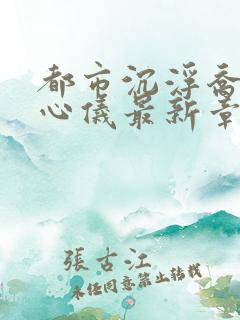 都市沉浮乔
心儀最新章
張古江
未任同意禁止转载